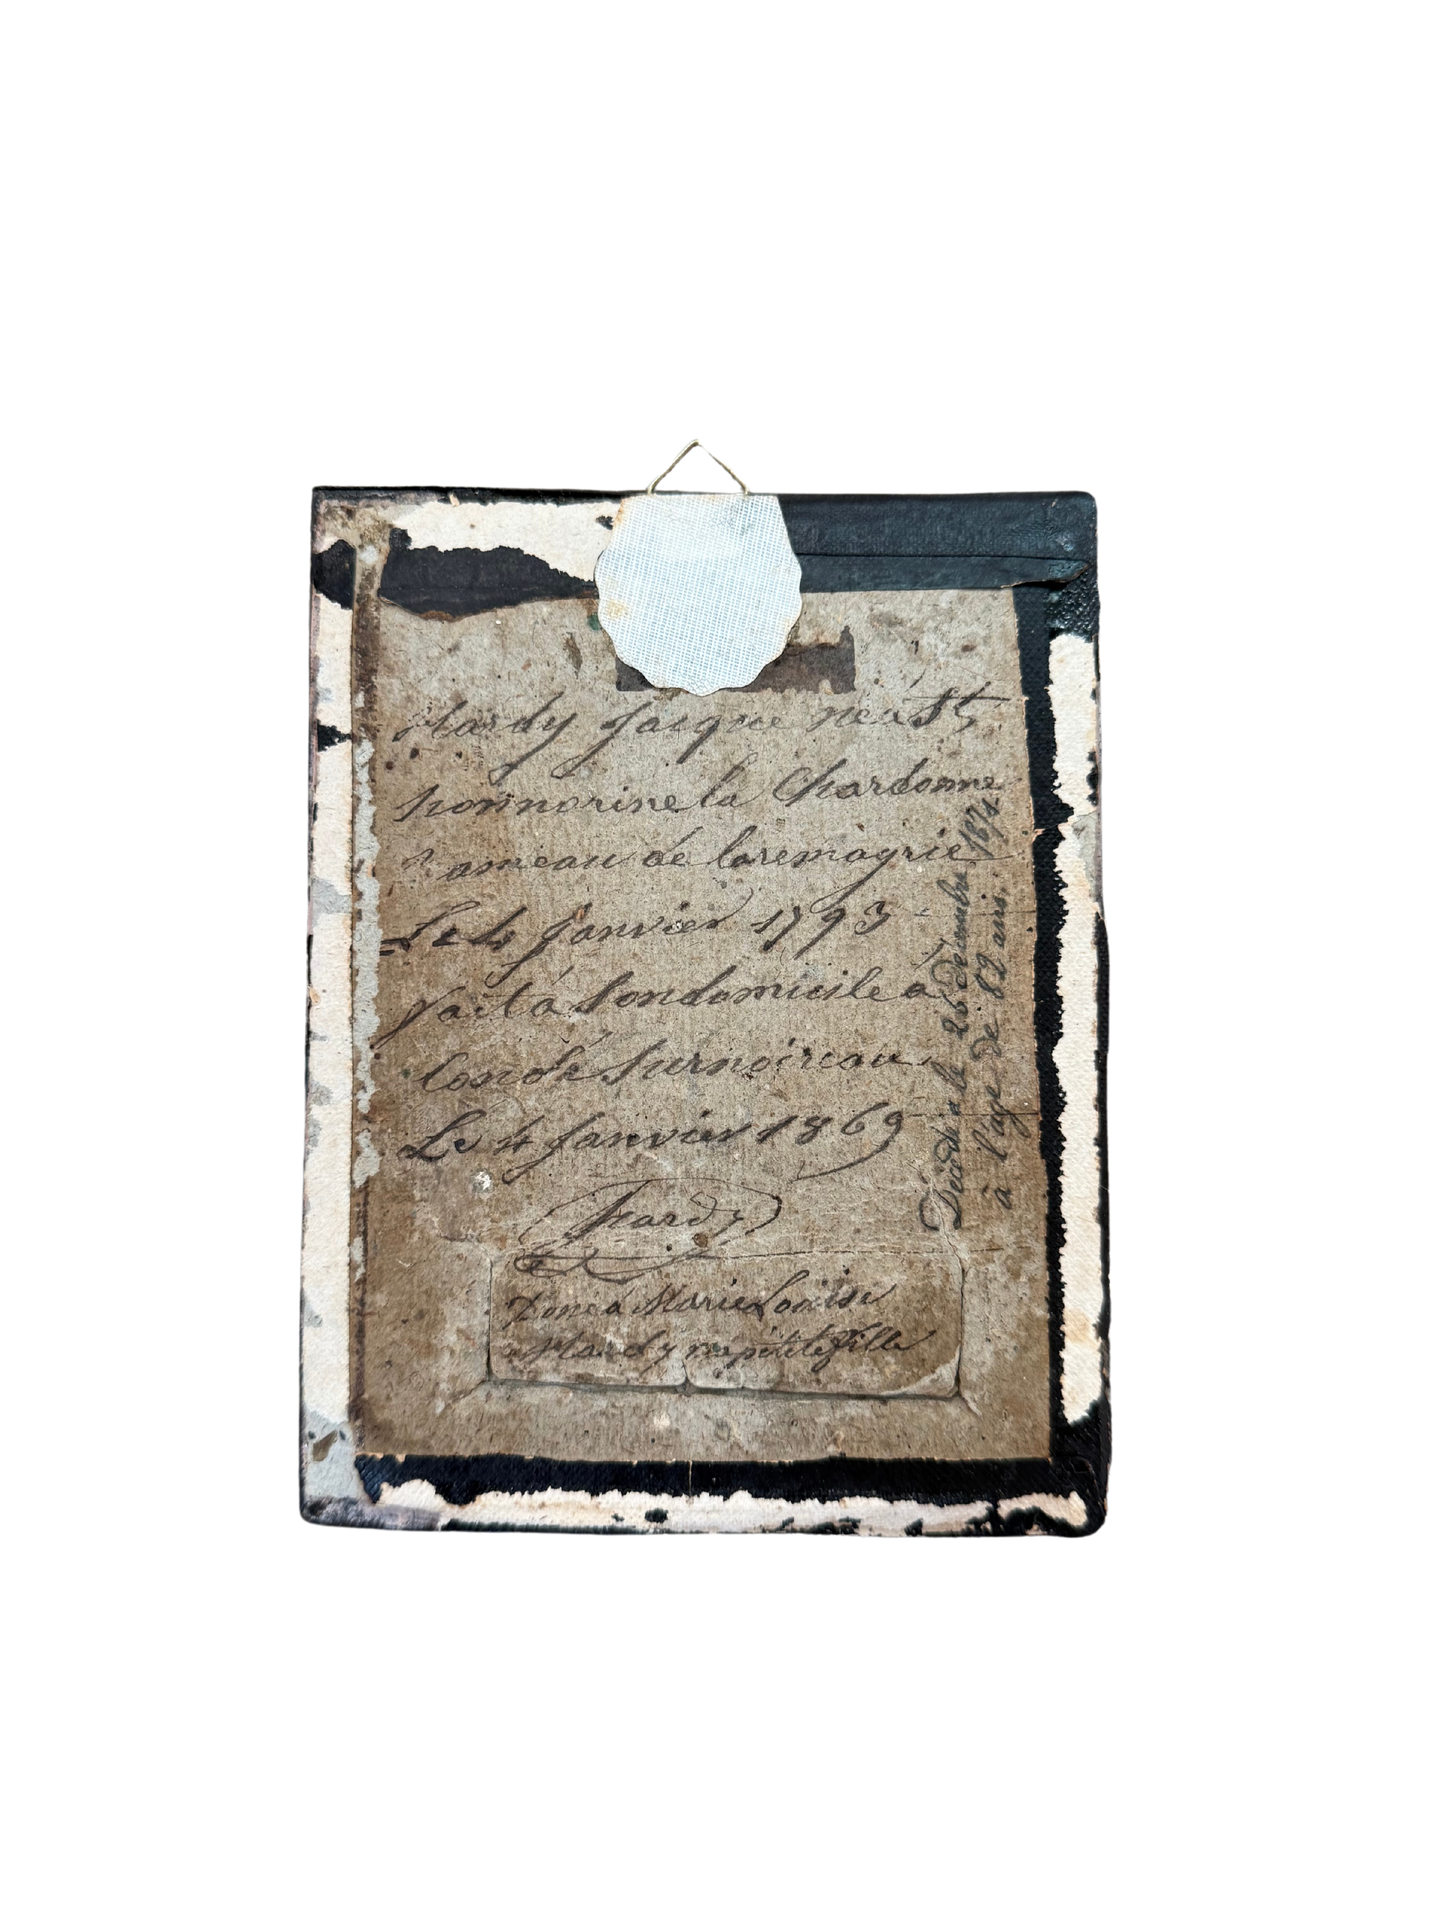 Hardy Jacque né a St
honnorine la Chardonne
hameau de laremagrie
Le 4 Janvier 1793
fait a Son domicile a
Condé Surnoireau
Le 4 Janvier 1869
Hardy
Doné a Marie Louise
Hardy ma petite fille
Décédé le 26 Décembre 1874
à l'age de 82 ans.